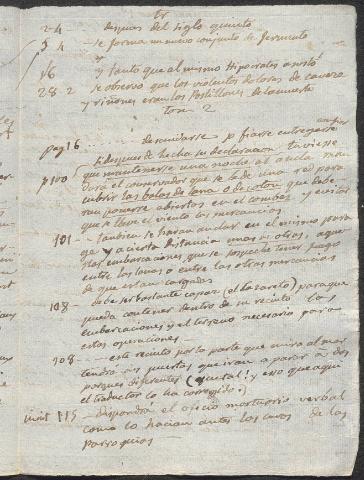 tr
24 despues del siglo quinto
34 se forma un nuevo conjunto de
16 y tanto que al mismo Hipocrates
28 2 se observo que los violentos dolores de caveza
y riñones eran los Postillones de la muerte
tom 2
pag 16 descuidarse p fiarse entregarse
p 100 si despues de hecha su declaracion tuviese
que mantenerse una noche al ancla man
dará el conservador que se le de una red para
cubrir las balas de lana o de coton que deve
ran ponerse abiertas en el combes y evitar
que se lleve el viento las mercancias
101 tambien se haran anclar en el mismo para
ge y a cierta distancia unas de otras, aque
llas embarcaciones que se sospeche tener fuego
entre las lanas o entre las otras mercancias
de que estan cargadas
108 debe ser bastante capaz (el lazareto) para que
pueda contener dentro de su recinto las
embarcaciones y el terreno necesario para
estas operaciones
108 este recinto por la parte que mira al mar
tendra puertas que iran a parar a dos
parques diferentes (que tal! y eso que aqui
el traductor lo ha corregido)
115 dispondrá el oficio mortuorio verbal
como lo hacian antes los curas de las
parroquias